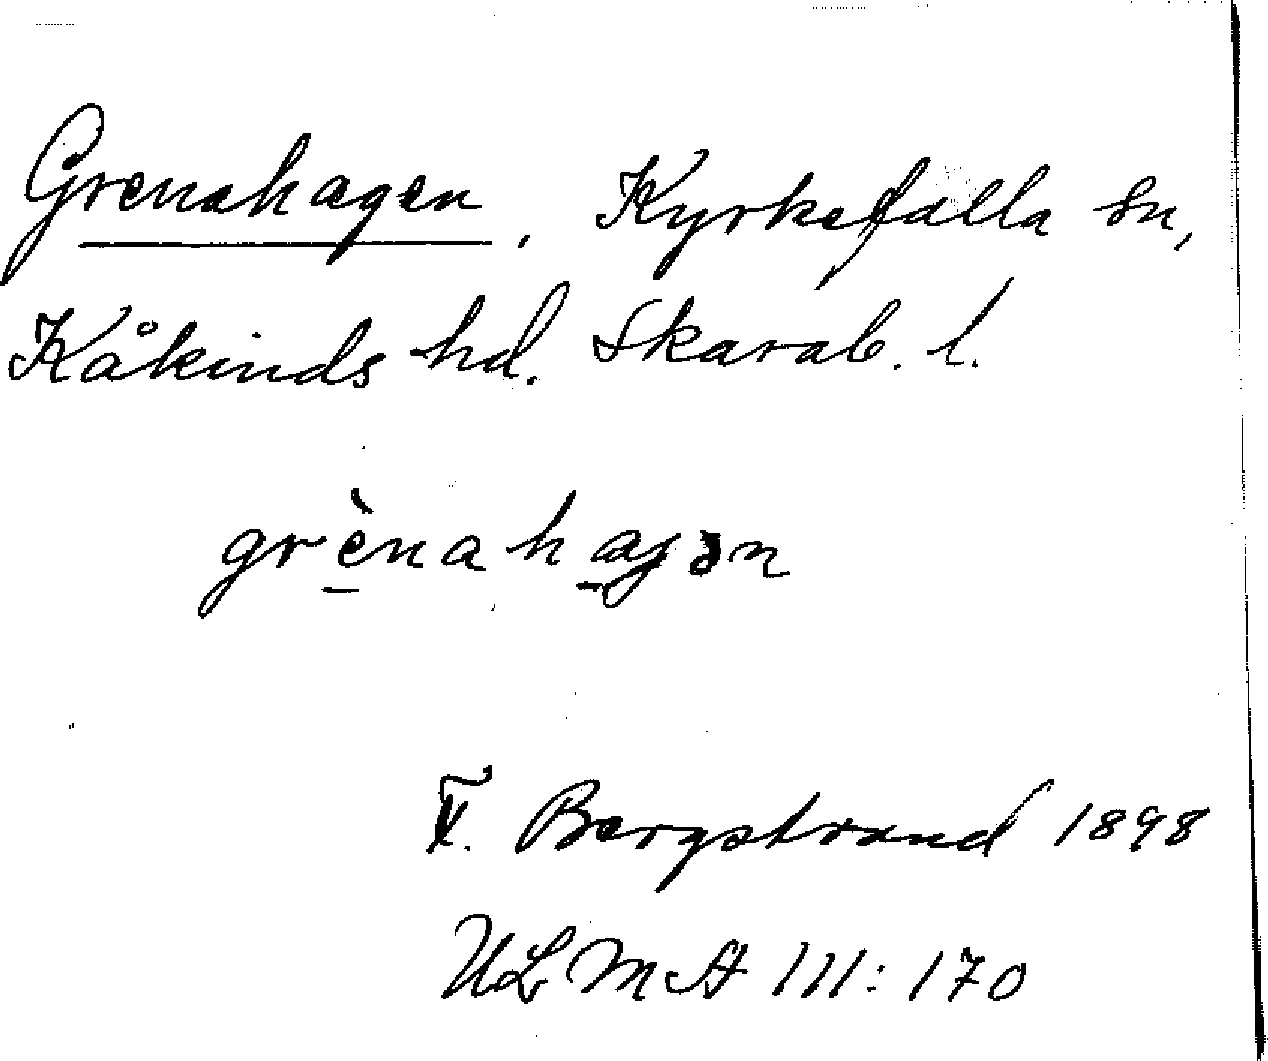 Grenahagen, Kyrkefalla sn,
Kåkinds hd. Skarab. l.
grènahagən
F. Bergstrand 1898
ULMA 111:170